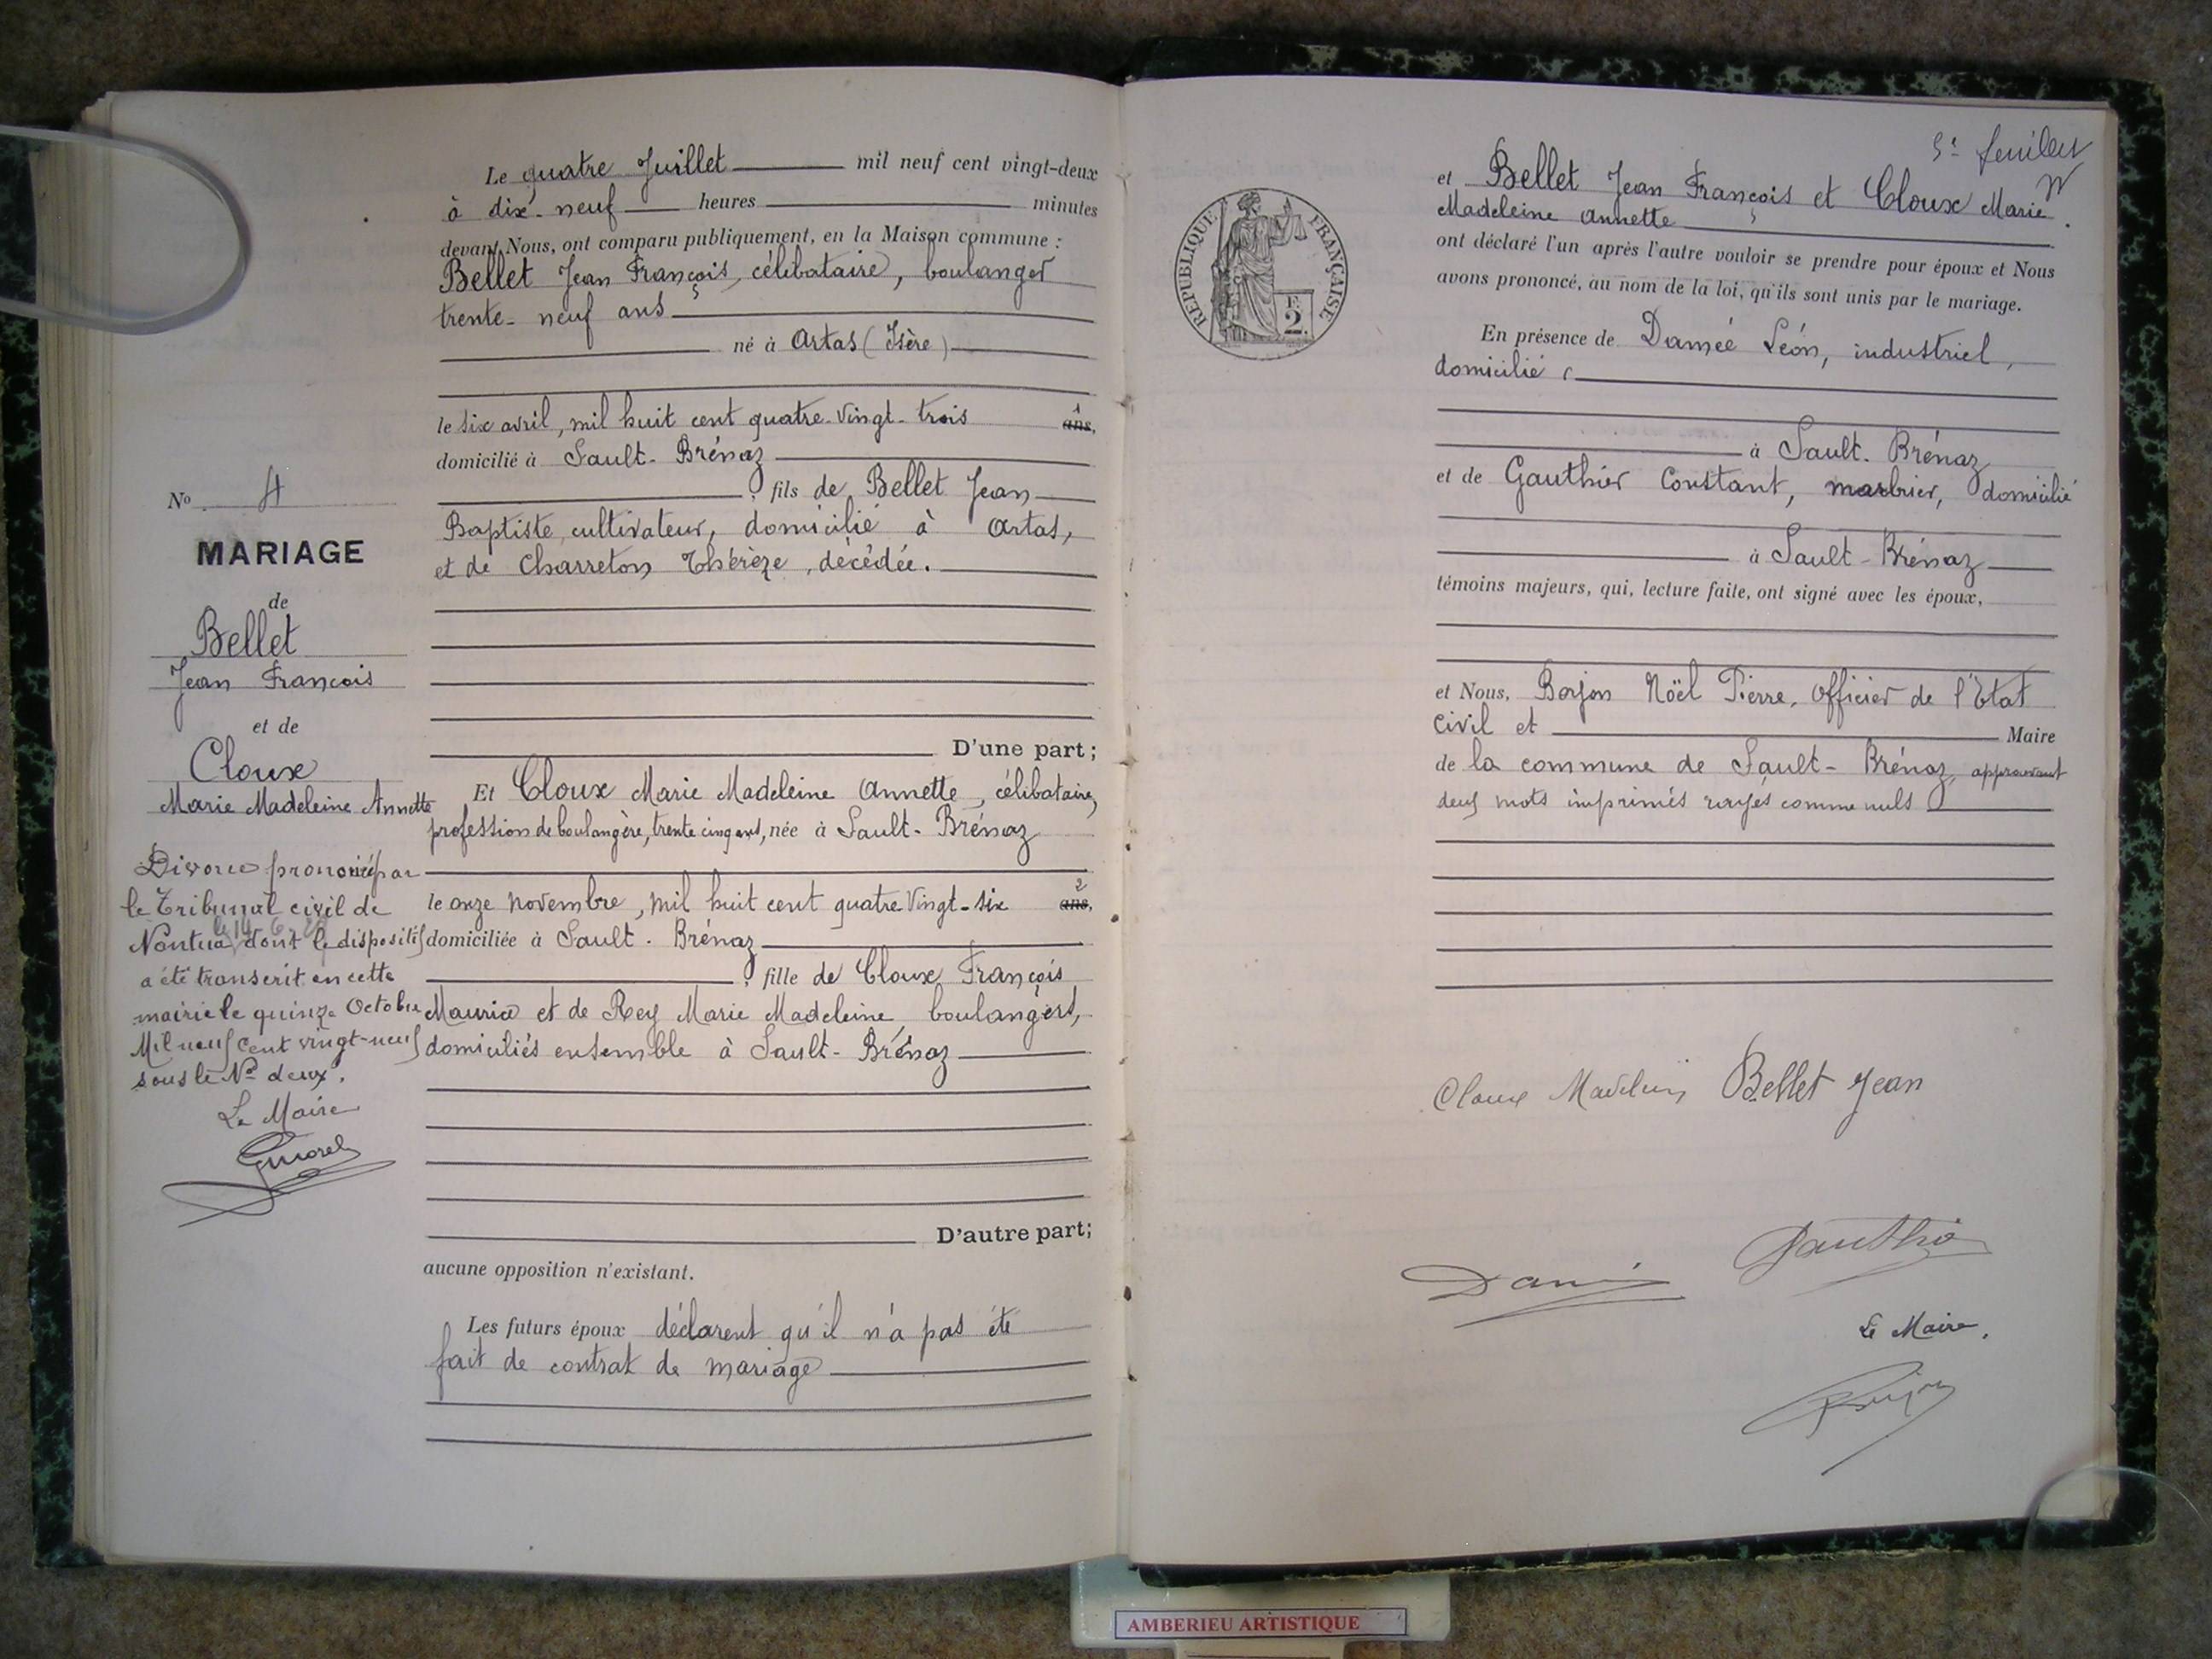 Le quatre Juillet mil neuf cent vingt-deux
à dix-neuf heures minutes
devant Nous, ont comparu publiquement, en la Maison commune :
Bellet Jean François, célibataire, boulanger
trente-neuf ans
né à Artas (Isère)
le six avril, mil huit cent quatre-vingt-trois ans, 1
domicilié à Sault-Brénaz
, fils de Bellet Jean
Baptiste, cultivateur, domicilié à Artas,
et de Charreton Thérèze, décédée.
D'une part ;
Et Cloux Marie Madeleine Annette, célibataire,
profession de boulangère, trente cinq ans, née à Sault-Brénaz
le onze novembre, mil huit cent quatre vingt-six ans, 2
domiciliée à Sault-Brénaz
, fille de Cloux François
Maurice et de Rey Marie Madeleine, boulangers,
domiciliés ensemble à Sault-Brénaz
D'autre part;
aucune opposition n'existant.
Les futurs époux déclarent qu'il n'a pas été
fait de contrat de mariage
No 4
MARIAGE
de
Bellet
Jean François
et de
Cloux
Marie Madeleine Annette
Divorce prononcé par
le Tribunal civil de
Nantua dont le dispositif
a été transcrit en cette
mairie le quinze Octobre
Mil neuf cent vingt-neuf
sous le No deux.
Le Maire
REPUBLIQUE FRANÇAISE
2
feuillet
et Bellet Jean François et Cloux Marie
Madeleine Annette
ont déclaré l'un après l'autre vouloir se prendre pour époux et Nous
avons prononcé, au nom de la loi, qu'ils sont unis par le mariage.
En présence de Damée Léon, industriel,
domicilié
à Sault-Brénaz
et de Gauthier Constant, marbrier, domicilié
à Sault-Brénaz
témoins majeurs, qui, lecture faite, ont signé avec les époux,
et Nous, Borjon Noël Pierre, Officier de l'Etat
civil et Maire
de la commune de Sault-Brénaz, approuvant
deux mots imprimés rayés comme nuls
Cloux Madeleine Bellet Jean
Gauthier
Le Maire,
AMBERIEU ARTISTIQUE